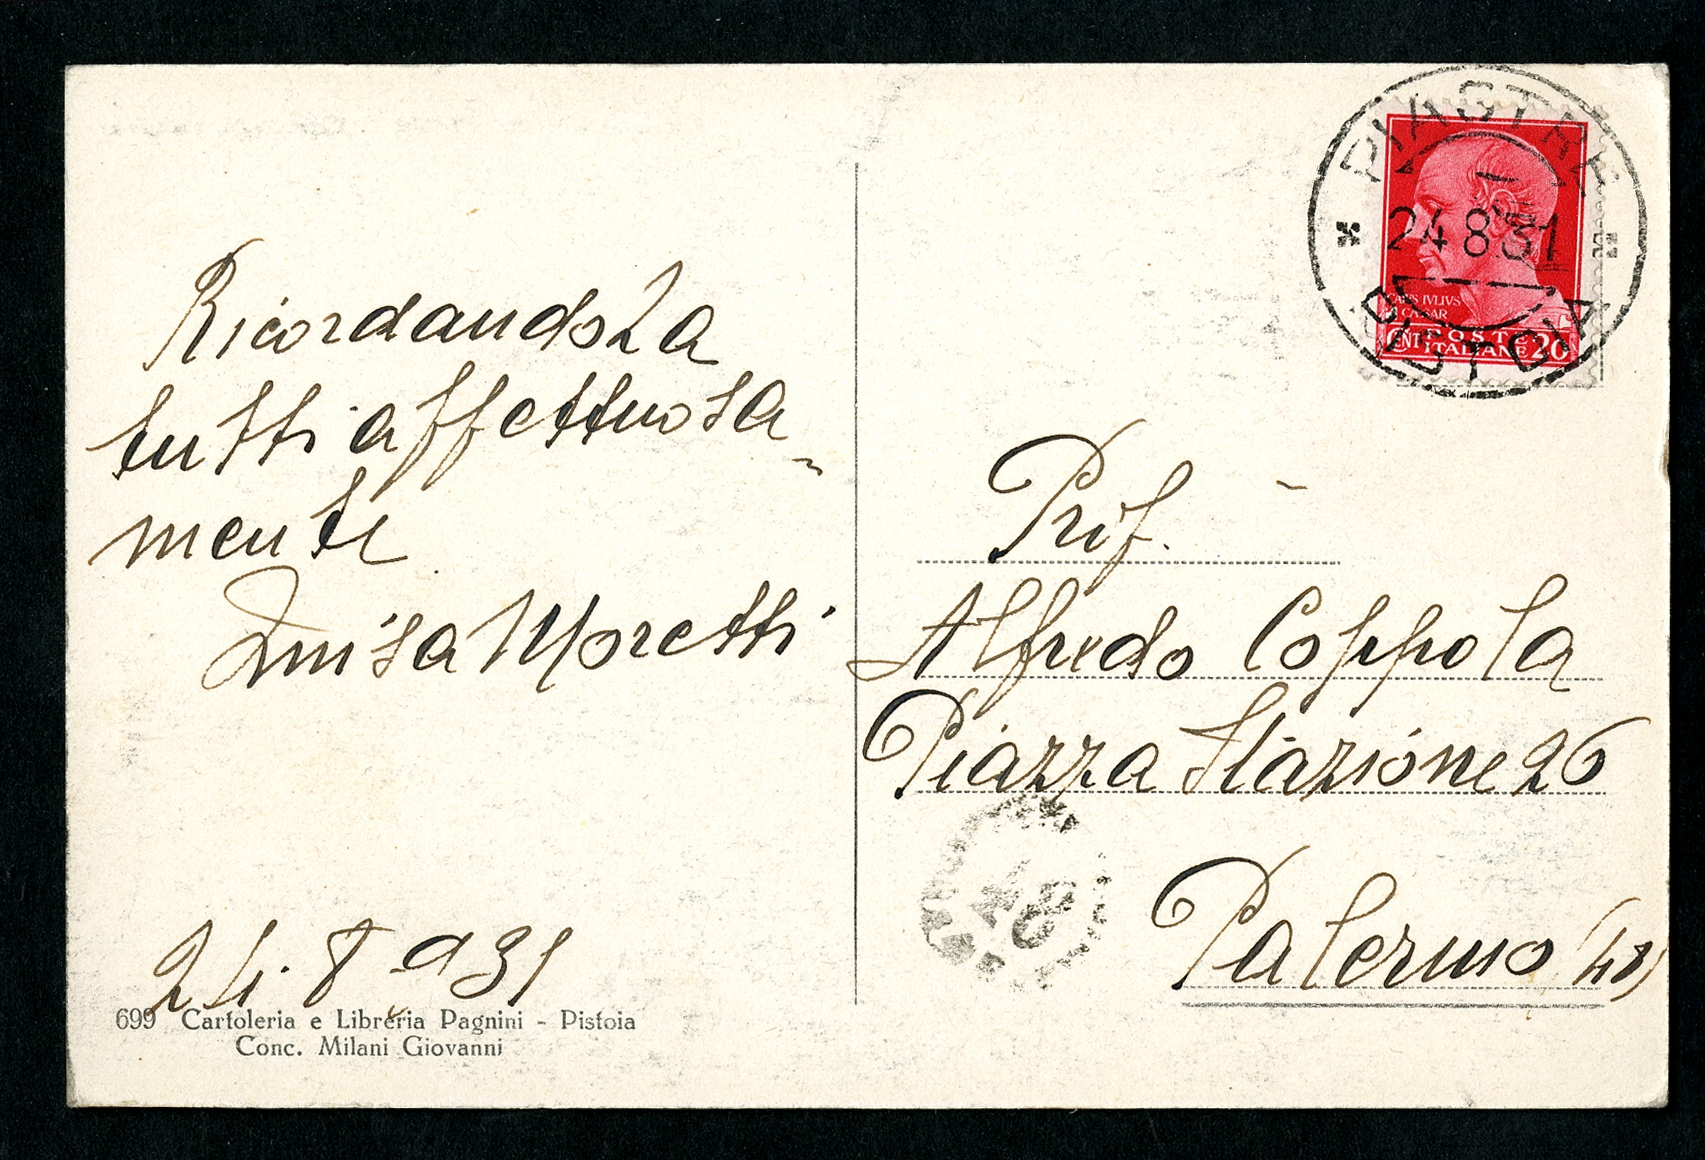 RicordandoLa
tutti affettuosa-
mente
Luisa Moretti
24.8.931
699 Cartoleria e Libreria Pagnini - Pistoia
Conc. Milani Giovanni
PIASTRE
24.8.31
PISTOIA
CAIVS IVLIVS
CAESAR
CENT POSTE
ITALIANE 20
Prof.
Alfredo Coppola
Piazza Stazione 26
Palermo (48)